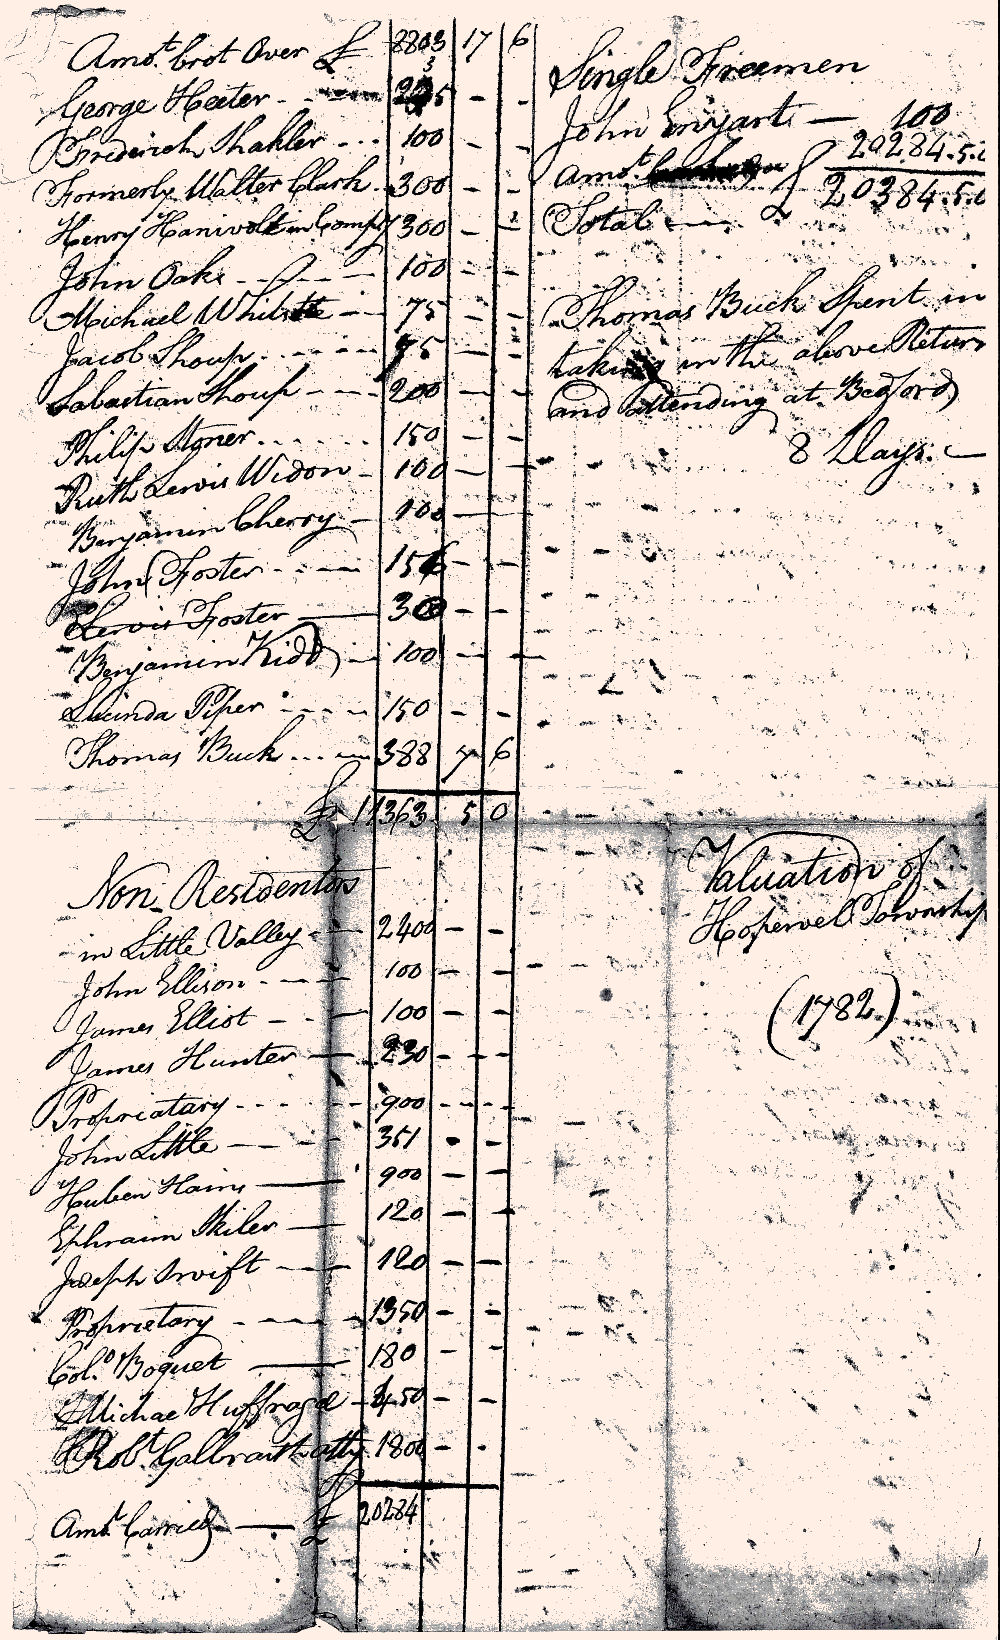 Amot. brot Over £ 8803 17 6
George Heeter - - 5 - -
Frederick Shakler - - - 100 - -
Formerly Walter Clark - 300 - -
Henry Hanivolt in Compy 300 - -
John Oake - - - - 100 - -
Michael - - 75 - -
Jacob Shoup - - - - - 75 - -
Sabastian Shoup - - - 200 - -
Philip Stoner - - - - - 150 - -
Ruth Lewis Widow - 100 - -
Benjamin Cherry - 100 - -
John Foster - - - 156 - -
Lewis Foster — 300 - -
Benjamin Kidd - 100 - -
Lucinda Piper - - - - 150 - -
Thomas Buck - - - - 388 7 6
£ 11363 5 0
Non Residentors
in Little Valley - - 2400 - -
John Ellison - - - 100 - -
James Elliot - - 100 - -
James Hunter — 230 - -
Propriatary - - - - - 900 - -
John Little — - 351 - -
Huben Hains — 900 - -
Ephraim Skiler — 120 - -
Joseph Swift - - 120 - -
Proprietary - - - - 1350 - -
Col.o Boquet — 180 - -
Michae Huffnagel - 450 - -
Robt. Galbraith atty 1800 - -
Amt. Carried — £ 20284
Single Freemen
John Enyart — 100
Amot. £ 20284.5.
Total — 20384.5.
Thomas Buck Spent in
taking in the above Return
and attending at Bedford
8 Days. —
Valuation of
Hopewel Township
(1782.)